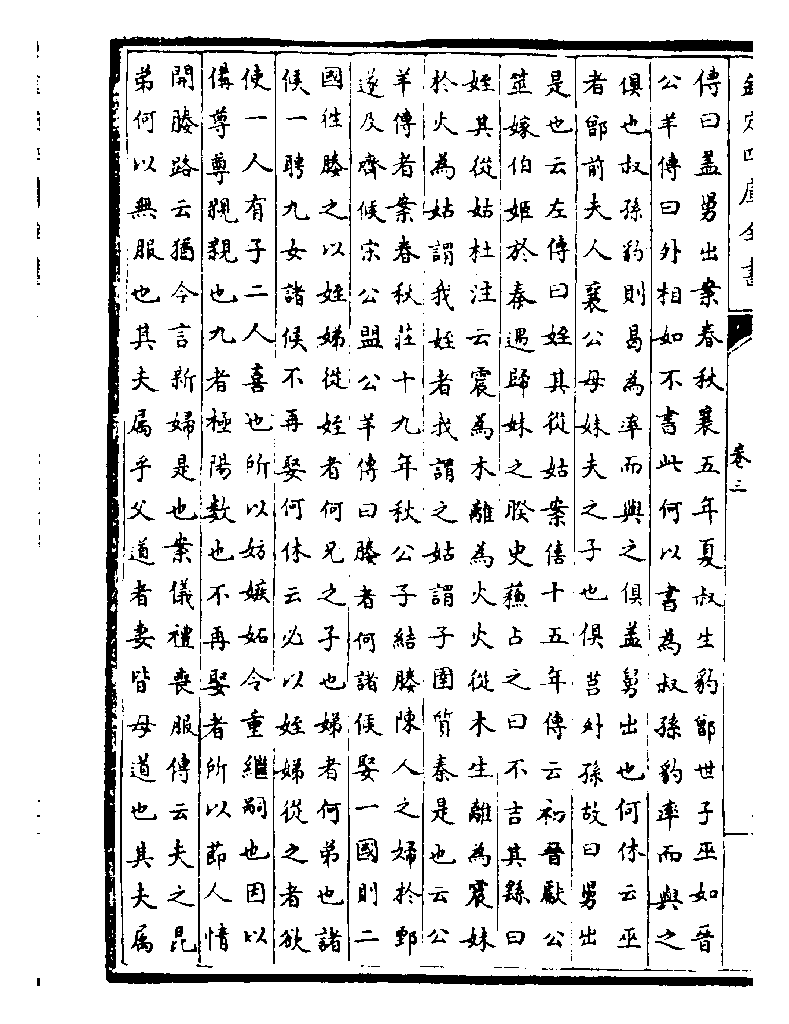 欽定四庫全書
卷三
傳曰盖舅出案春秋襄五年夏叔生豹鄫世子巫如晉
公羊傳曰外相如不書此何以書為叔孫豹率而與之
俱也叔孫豹則曷為率而與之俱盖舅出也何休云巫
者鄫前夫人襄公母妹夫之子也俱莒外孫故曰舅出
是也云左傳曰姪其從姑案僖十五年傳云初晉獻公
筮嫁伯姬於秦遇歸妹之睽史蘓占之曰不吉其繇曰
姪其從姑杜注云震為木離為火火從木生離為震妹
於火為姑謂我姪者我謂之姑謂子圉質秦是也云公
羊傳者案春秋莊十九年秋公子結媵陳人之婦於鄄
遂及齊候宋公盟公羊傳曰媵者何諸候娶一國則二
國往媵之以姪娣從姪者何兄之子也娣者何弟也諸
候一聘九女諸候不再娶何休云必以姪娣從之者欲
使一人有子二人喜也所以妨嫉妬令重繼嗣也因以
備尊尊親親也九者極陽數也不再娶者所以節人情
開媵路云猶今言新婦是也案儀禮喪服傳云夫之昆
弟何以無服也其夫属乎父道者妻皆母道也其夫属